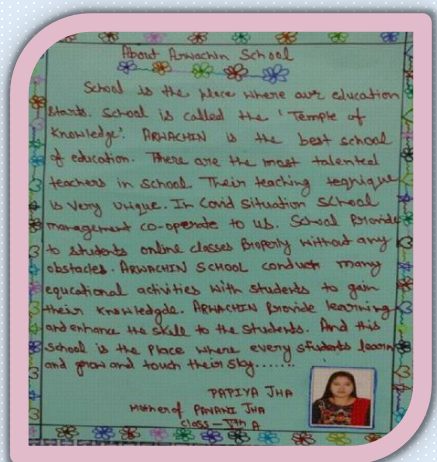 About Arwachin School
School is the place where our education
starts. School is called the 'Temple of
Knowledge'. ARWACHIN is the best school
of education. There are the most talented
teachers in school. Their teaching teqnique
is very unique. In Covid situation school
management co-operate to us. School Provide
to students online classes Properly without any
obstacles. ARWACHIN SCHOOL conduct many
equcational activities with students to gain
their knowledgde. ARWACHIN Provide learning
and enhance the skill to the students. And this
school is the Place where every students learn
and grow and touch their sky......
PAPIYA JHA
Mother of PAVANI JHA
class - A